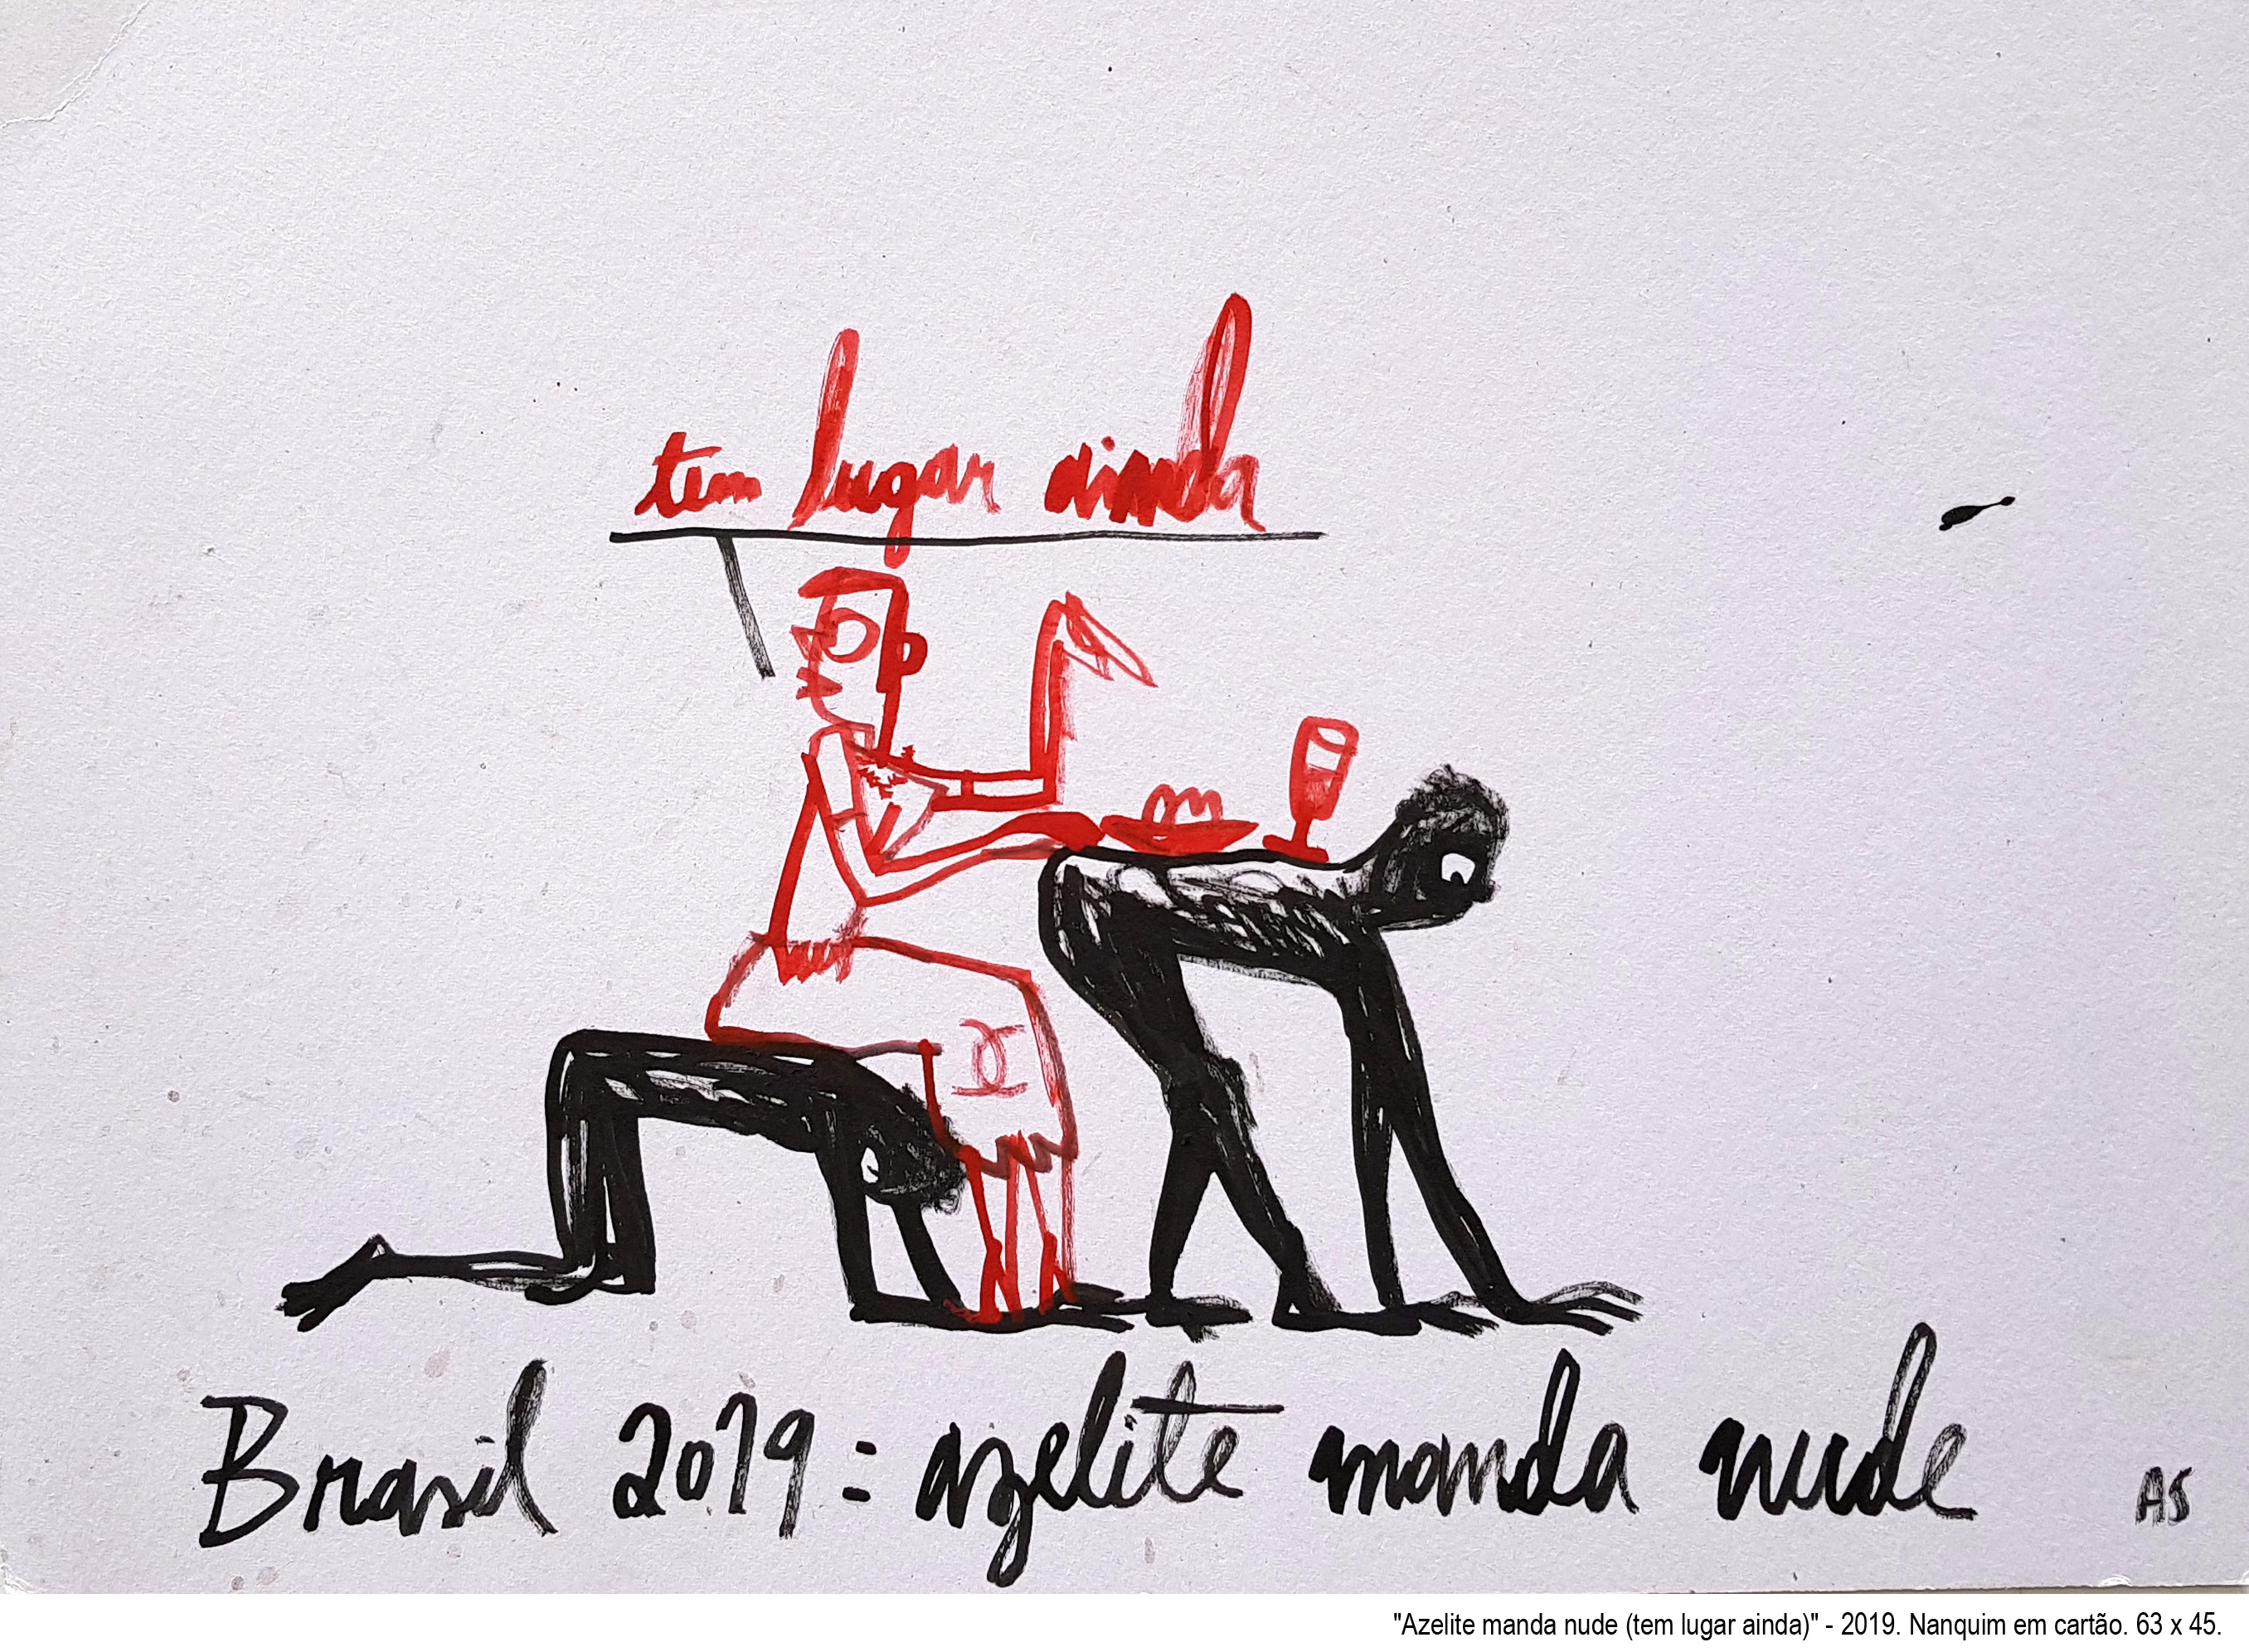 tem lugar ainda
Brasil 2019: azelite manda nude
AS
"Azelite manda nude (tem lugar ainda)" - 2019. Nanquim em cartão. 63 x 45.